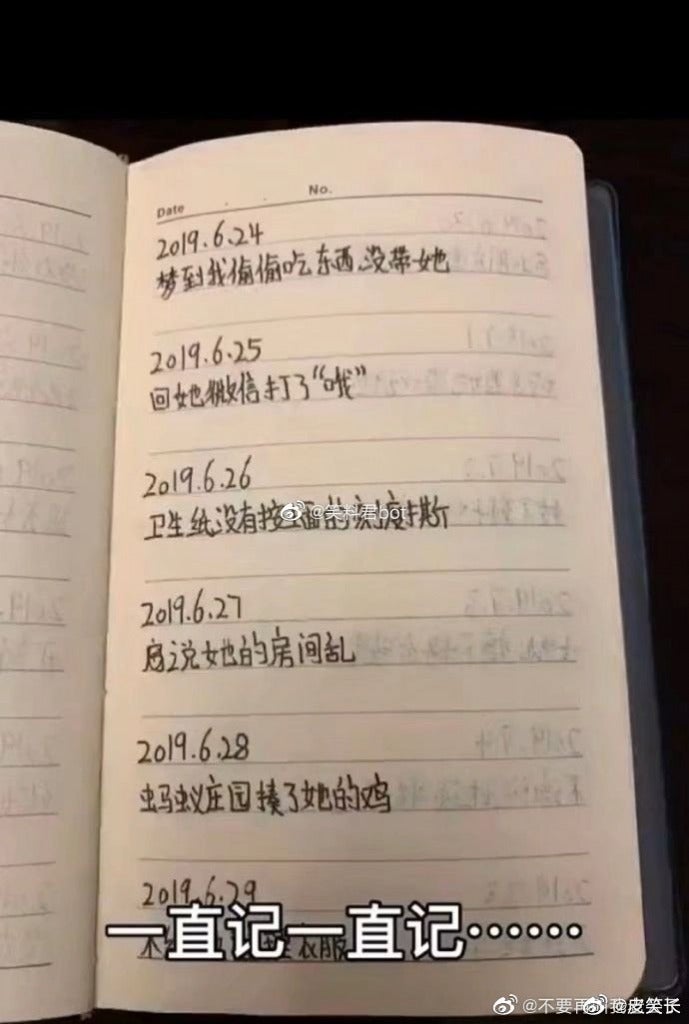 Date . . No.
2019.6.24
梦到我偷偷吃东西没带她
2019.6.25
回她微信打了“哦”
2019.6.26
卫生纸没有按上面的刻度撕
@笑料君bot
2019.6.27
说她的房间乱
2019.6.28
蚂蚁庄园揍了她的鸡
2019.6.29
衣服
一直记一直记……
@不要再
@皮笑长